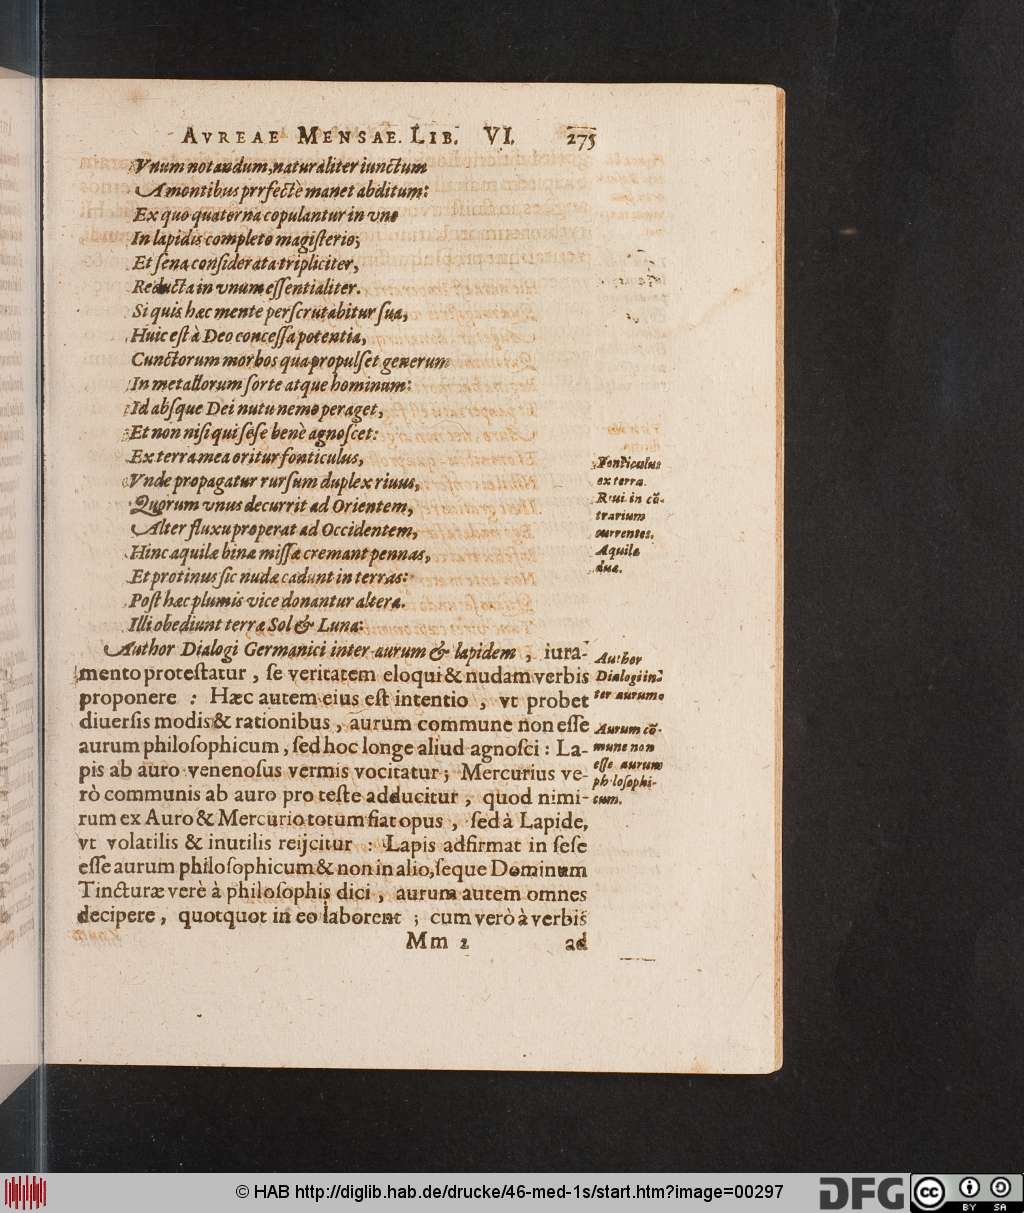 AVREAE MENSAE. LIB. VI. 275
Vnum notandum, naturaliter iunctum
Amontibus prrfectè manet abditum:
Ex quo quaterna copulantur in vno
In lapidis completo magiſterio;
Et ſena conſiderata tripliciter,
Reducta in vnum eſſentialiter.
Si quis hæc mente perſcrutabitur ſua,
Huic eſt à Deo conceſſa potentia,
Cunctorum morbos qua propulſet generum
In metallorum ſorte atque hominum:
Id abſque Dei nutu nemo peraget,
Et non niſi qui ſeſe benè agnoſcet:
Ex terra mea oritur fonticulus,
Vnde propagatur rurſum duplex riuus,
Quorum vnus decurrit ad Orientem,
Alter fluxu properat ad Occidentem,
Hinc aquilæ binæ miſſæ cremant pennas,
Et protinus ſic nudæ cadunt in terras:
Poſt hæc plumis vice donantur altera.
Illi obediunt terræ Sol & Luna:
Fonticulus
ex terra.
Riui in cō-
trarium
currentes.
Aquilæ
duæ.
Author Dialogi Germanici inter aurum & lapidem, iura-
mento proteſtatur, ſe veritatem eloqui & nudam verbis
proponere : Hæc autem eius eſt intentio, vt probet
diuerſis modis & rationibus, aurum commune non eſſe
aurum philoſophicum, ſed hoc longe aliud agnoſci: La-
pis ab auro venenoſus vermis vocitatur; Mercurius ve-
rò communis ab auro pro teſte adducitur, quod nimi-
rum ex Auro & Mercurio totum fiat opus, ſed à Lapide,
vt volatilis & inutilis reijcitur : Lapis adfirmat in ſeſe
eſſe aurum philoſophicum & non in alio, ſeque Dominum
Tincturæ verè à philoſophis dici, aurum autem omnes
decipere, quotquot in eo laborent ; cum verò à verbis
Author
Dialogi in-
ter aurum.
Aurum cō-
mune non
eſſe aurum
philoſophi-
cum.
Mm 2 ad
© HAB http://diglib.hab.de/drucke/46-med-1s/start.htm?image=00297
DFG
cc BY SA